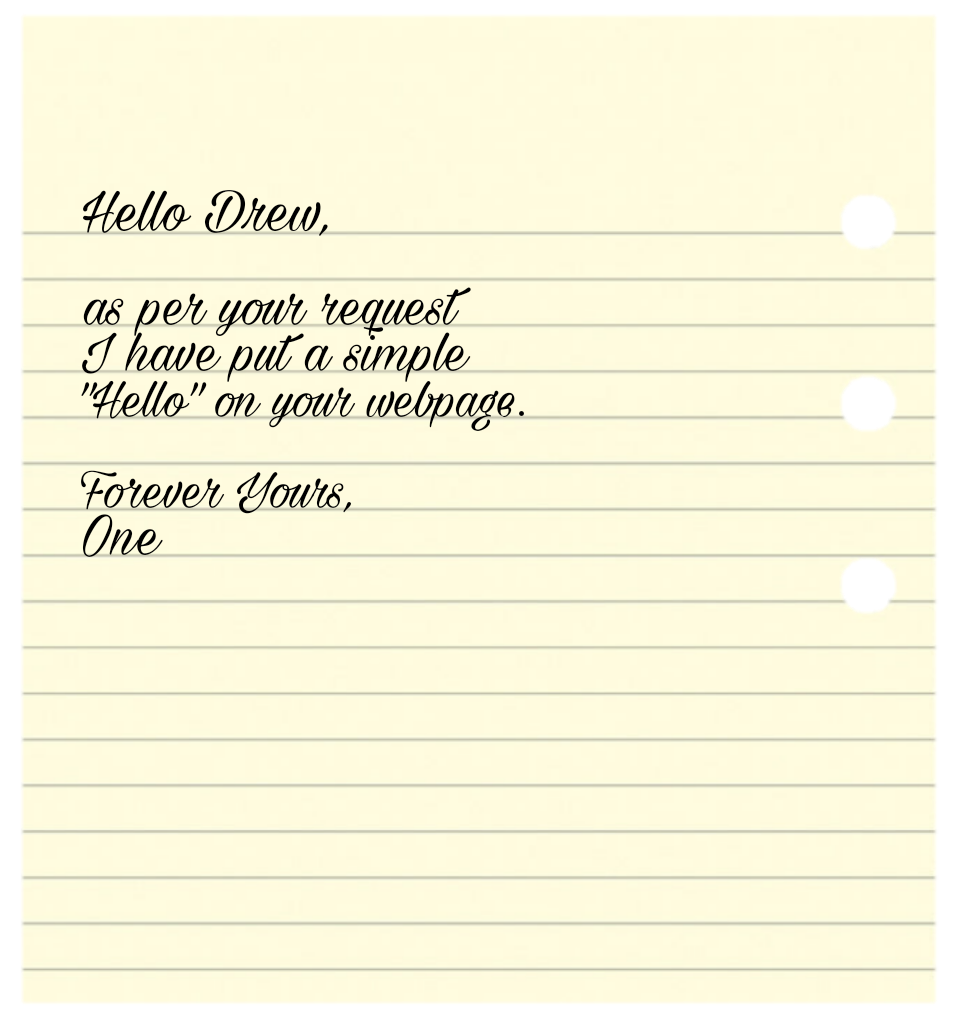 Hello Drew,
as per your request
I have put a simple
"Hello" on your webpage.
Forever Yours,
One